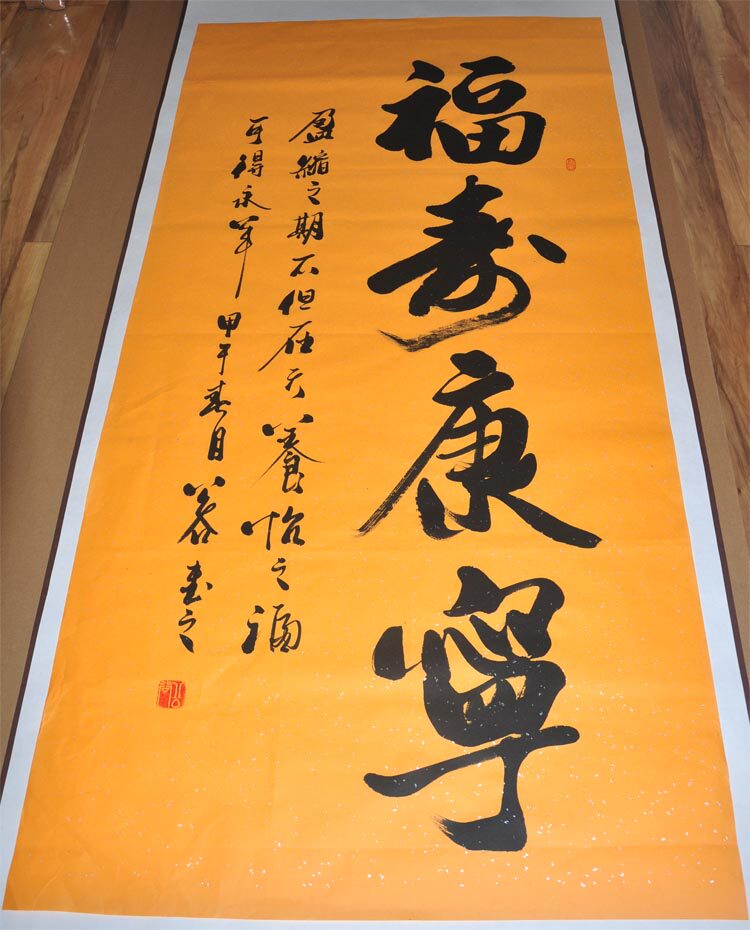 福寿康寧
盈縮之期不但在天養怡之福
可得永年 甲午春月 書之